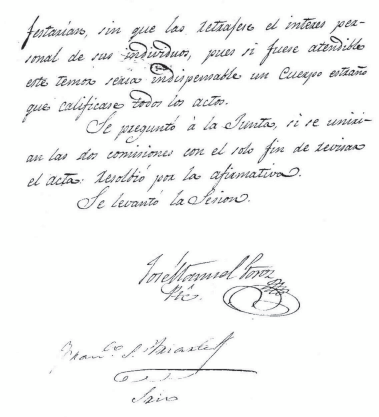 festarian, sin que las retrajese el interes per-
sonal de sus individuos, pues si fuese atendible
este temor seria indispensable un Cuerpo estraño
que calificase todos los actos.
Se preguntó á la Junta, si se unirí-
an las dos comisiones con el solo fin de revisar
el acta: Resolbió por la afirmativa.
Se levantó la Sesion.
José Manuel
Franco. S. Iriarte
Srio